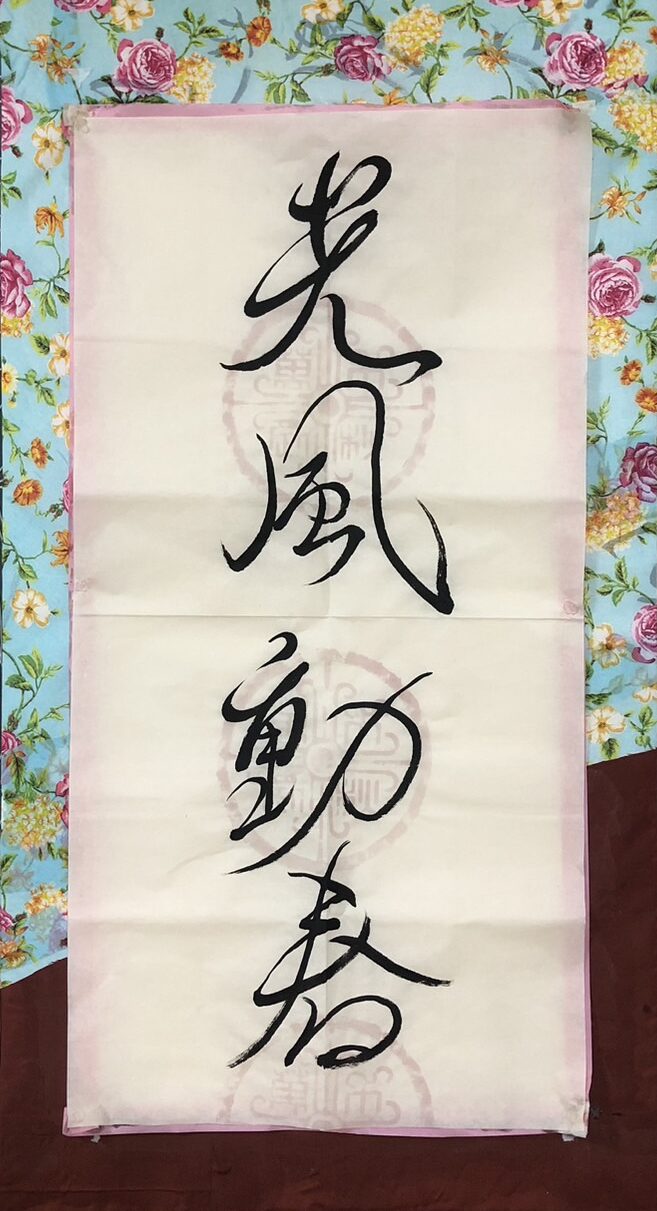 光風動春